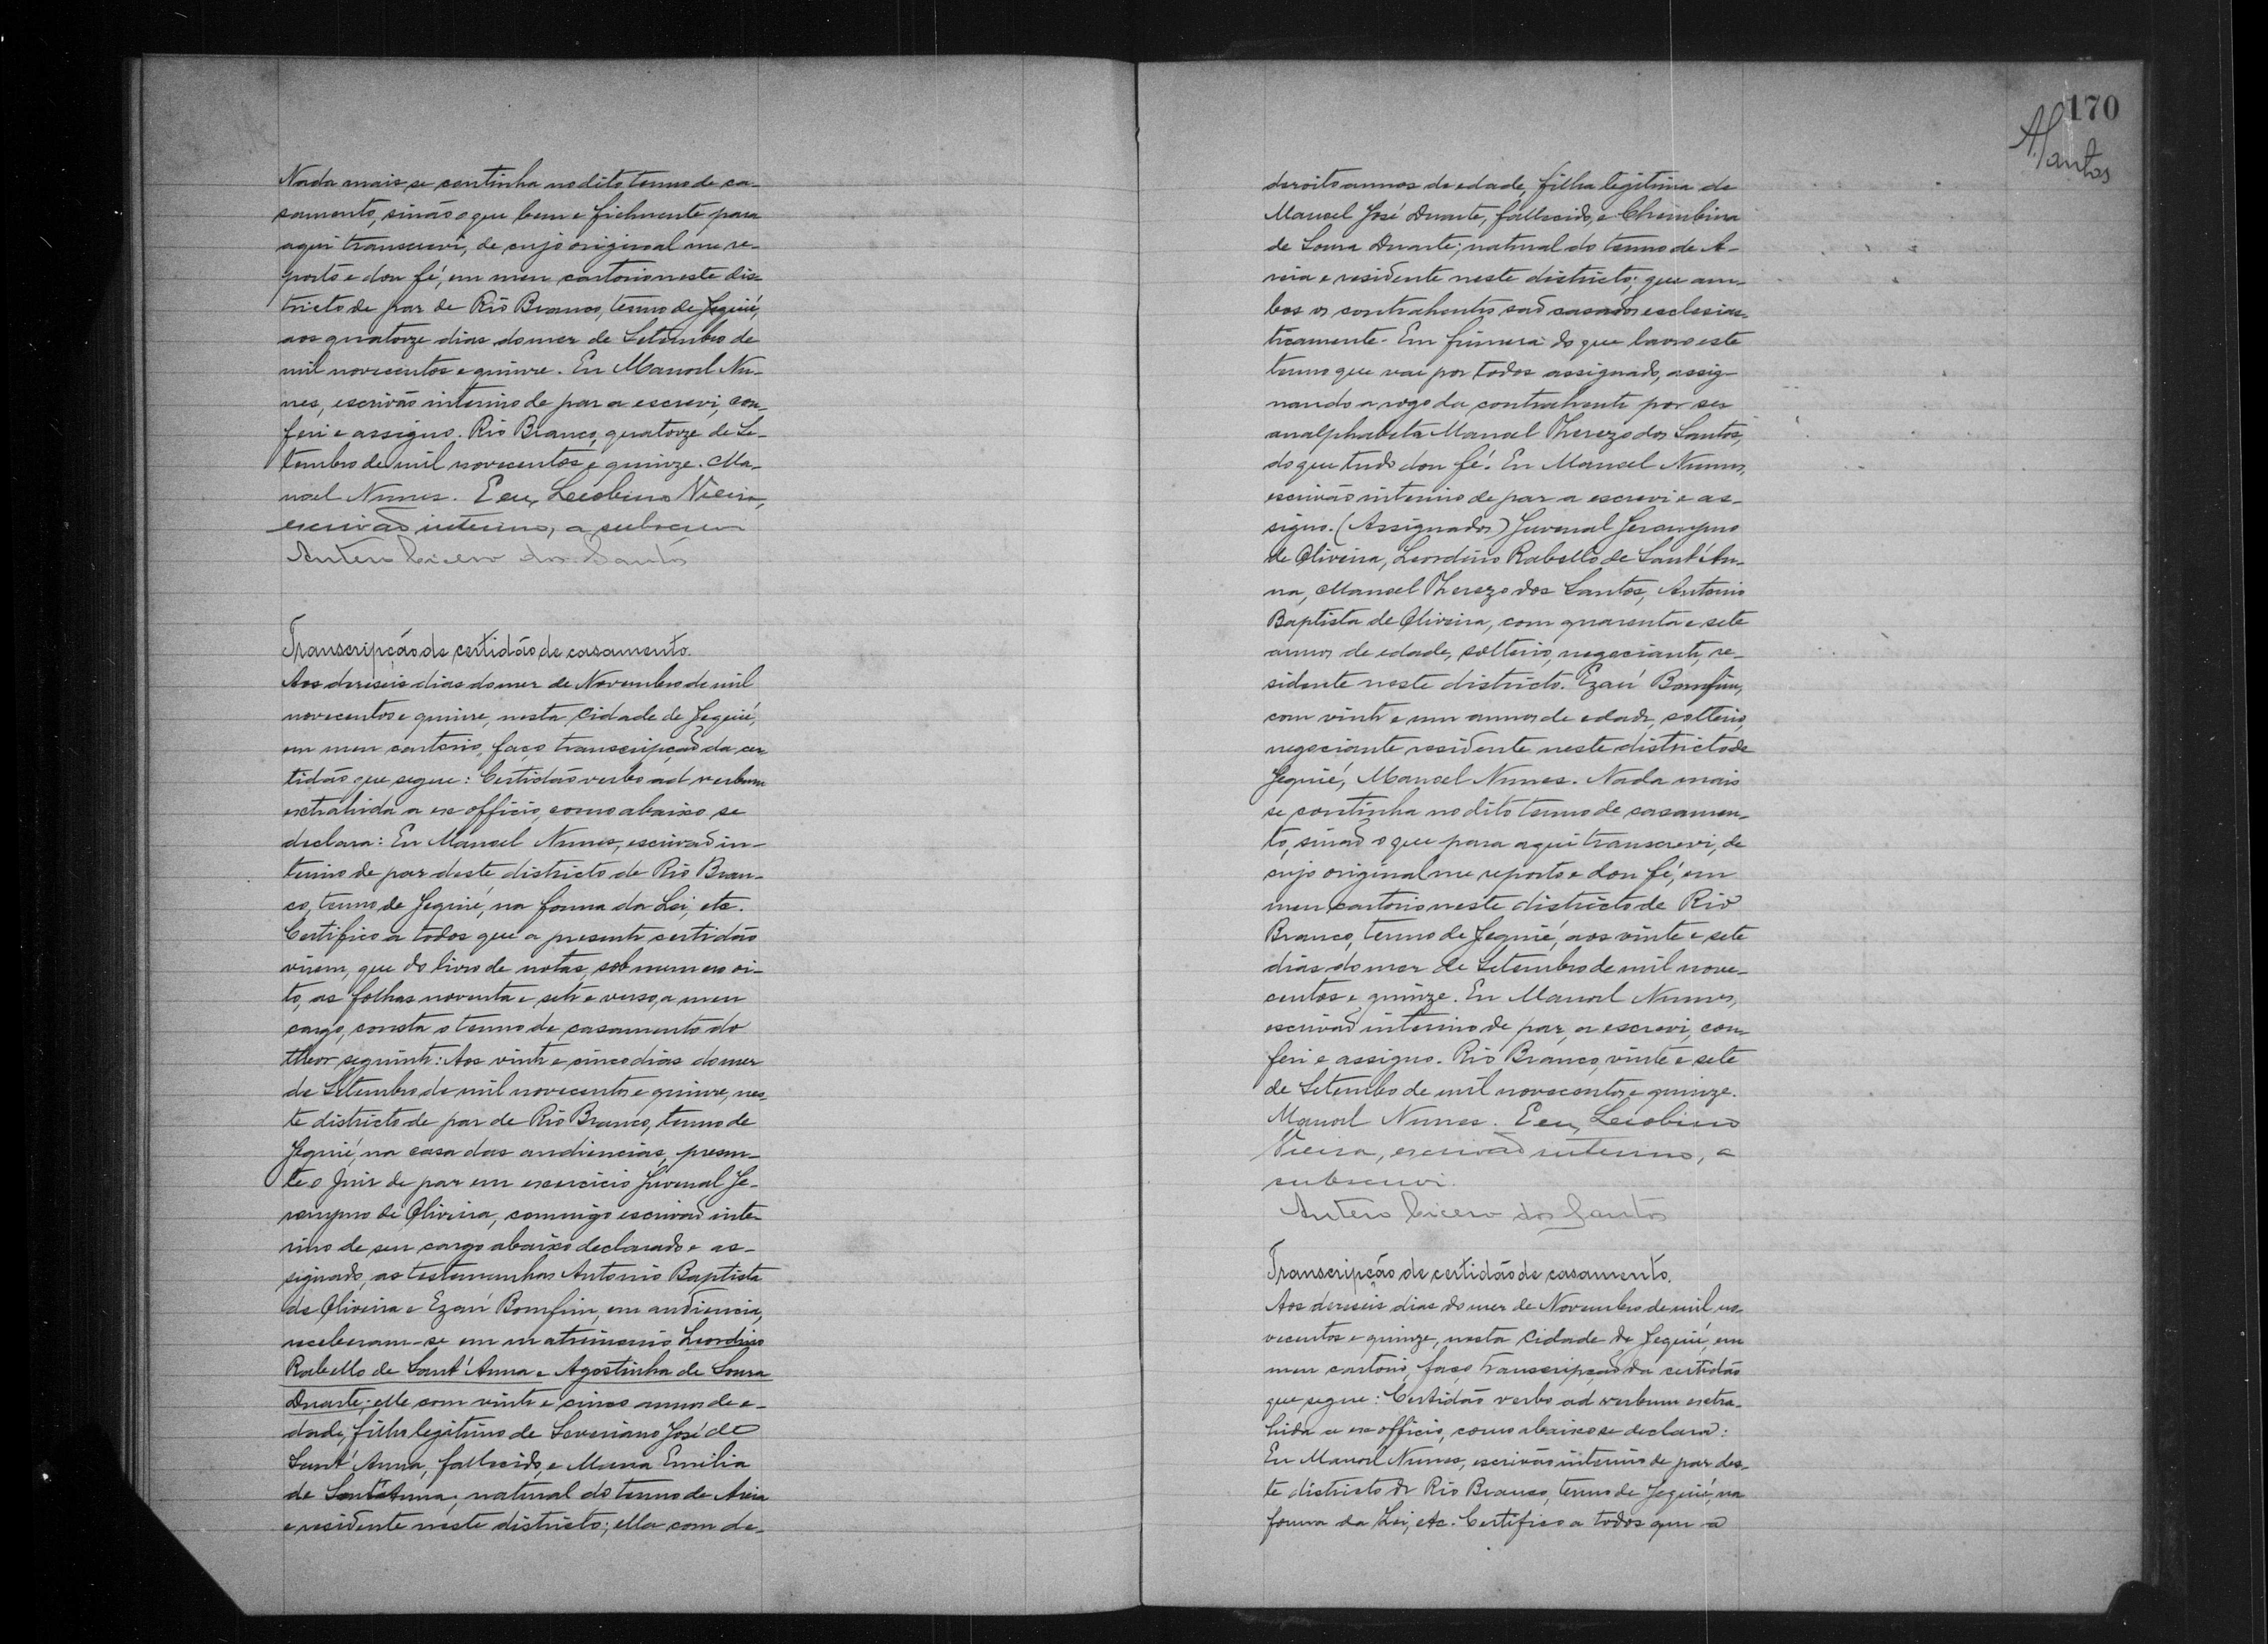 Nada mais se continha no dito termo de ca-
samento, sinão o que bem e fielmente para
aqui transcrevi, de cujo original me re-
porto e dou fé, em meu cartorio neste dis-
tricto de paz de Rio Branco, termo de Jequié,
aos quatorze dias do mez de Setembro de
mil novecentos e quinze. Eu Manoel Nu-
nes, escrivão interino de paz a escrevi, con-
feri e assigno. Rio Branco, quatorze de Se-
tembro de mil novecentos e quinze. Ma-
noel Nunes. E eu, Leobino Vieira,
escrivão interino, a subscrevi
Antero Cicero dos Santos
Transcripção de certidão de casamento.
Aos dezeseis dias do mez de Novembro de mil
novecentos e quinze, nesta Cidade de Jequié,
em meu cartorio, faço transcripção da cer-
tidão que segue: Certidão verbo ad verbum
extrahida a ex officio, como abaixo se
declara: Eu Manoel Nunes, escrivão in-
terino de paz deste districto de Rio Bran-
co, termo de Jequié, na forma da Lei, etc.
Certifico a todos que a presente certidão
virem, que do livro de notas, sob numero oi-
to, as folhas noventa e sete e verso, a meu
cargo, consta o termo de casamento do
theor seguinte: Aos vinte e cinco dias do mez
de Setembro de mil novecentos e quinze, nes-
te districto de paz de Rio Branco, termo de
Jequié, na casa das audiencias, presen-
te o Juiz de paz em exercicio Juvenal Je-
ronymo de Oliveira, commigo escrivão inte-
rino de seu cargo abaixo declarado e as-
signado, as testemunhas Antonio Baptista
de Oliveira e Ezaú Bomfim, em audiencia,
receberam-se em matrimonio Leordino
Rabello de Sant'Anna e Agostinha de Souza
Duarte; elle com vinte e cinco annos de e-
dade, filho legitimo de Severiano José de
Sant'Anna, fallecido, e Maria Emilia
de Sant'Anna; natural do termo de Areia
e residente neste districto; ella com de-
170
ASantos
zoito annos de edade, filha legitima de
Manoel José Duarte, fallecido, e Cherubina
de Souza Duarte; natural do termo de A-
reia e residente neste districto; que am-
bos os contrahentes são casados ecclesias-
ticamente. Em firmeza do que lavro este
termo que vai por todos assignado, assig-
nando a rogo da contrahente por ser
analphabeta Manoel Therezo dos Santos,
do que tudo dou fé. Eu Manoel Nunes,
escrivão interino de paz a escrevi e as-
signo. (Assignados) Juvenal Jeronymo
de Oliveira, Leordino Rabello de Sant'An-
na, Manoel Therezo dos Santos, Antonio
Baptista de Oliveira, com quarenta e sete
annos de edade, solteiro, negociante, re-
sidente neste districto. Ezaú Bomfim,
com vinte e um annos de edade, solteiro,
negociante residente neste districto de
Jequié, Manoel Nunes. Nada mais
se continha no dito termo de casamen-
to, sinão o que para aqui transcrevi, de
cujo original me reporto e dou fé, em
meu cartorio neste districto de Rio
Branco, termo de Jequié, aos vinte e sete
dias do mez de Setembro de mil nove-
centos e quinze. Eu Manoel Nunes,
escrivão interino de paz, a escrevi, con-
feri e assigno. Rio Branco, vinte e sete
de Setembro de mil novecentos e quinze.
Manoel Nunes. E eu, Leobino
Vieira, escrivão interino, a
subscrevi.
Antero Cicero dos Santos
Transcripção de certidão de casamento.
Aos dezeseis dias do mez de Novembro de mil no-
vecentos e quinze, nesta Cidade de Jequié, em
meu cartorio, faço transcripção da certidão
que segue: Certidão verbo ad verbum extra-
hida a ex officio, como abaixo se declara:
Eu Manoel Nunes, escrivão interino de paz des-
te districto de Rio Branco, termo de Jequié, na
forma da Lei, etc. Certifico a todos que a